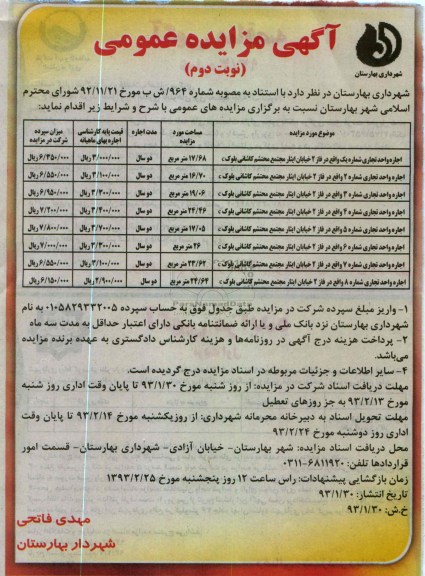 آگهی مزایده عمومی
(نوبت دوم)
شهرداری بهارستان
شهرداری بهارستان در نظر دارد با استناد به مصوبه شماره ۹۶۴/ش ب مورخ ۹۲/۱۱/۲۱ شورای محترم
اسلامی شهر بهارستان نسبت به برگزاری مزایده های عمومی با شرح و شرایط زیر اقدام نماید:
موضوع مورد مزایده مساحت مورد مزایده مدت اجاره قیمت پایه کارشناسی اجاره بهای ماهیانه میزان سپرده شرکت در مزایده
اجاره واحد تجاری شماره یک واقع در فاز ۲ خیابان ایثار مجتمع محتشم کاشانی بلوک c ۱۷/۶۸ متر مربع دو سال ۳/۰۰۰/۰۰۰ ریال ۶/۳۵۰/۰۰۰ ریال
اجاره واحد تجاری شماره ۲ واقع در فاز ۲ خیابان ایثار مجتمع محتشم کاشانی بلوک c ۱۶/۷۰ متر مربع دو سال ۳/۱۰۰/۰۰۰ ریال ۶/۵۵۰/۰۰۰ ریال
اجاره واحد تجاری شماره ۳ واقع در فاز ۲ خیابان ایثار مجتمع محتشم کاشانی بلوک c ۱۹/۰۶ متر مربع دو سال ۳/۲۰۰/۰۰۰ ریال
اجاره واحد تجاری شماره ۴ واقع در فاز ۲ خیابان ایثار مجتمع محتشم کاشانی بلوک c ۲۴/۴۶ متر مربع دو سال ۳/۴۰۰/۰۰۰ ریال ۷/۲۰۰/۰۰۰ ریال
اجاره واحد تجاری شماره ۵ واقع در فاز ۲ خیابان ایثار مجتمع محتشم کاشانی بلوک c ۱۷/۰۵ متر مربع دو سال ۳/۷۰۰/۰۰۰ ریال ۷/۸۰۰/۰۰۰ ریال
اجاره واحد تجاری شماره ۶ واقع در فاز ۲ خیابان ایثار مجتمع محتشم کاشانی بلوک c ۲۶ متر مربع دو سال ۳/۳۰۰/۰۰۰ ریال ۷/۰۰۰/۰۰۰ ریال
اجاره واحد تجاری شماره ۷ واقع در فاز ۲ خیابان ایثار مجتمع محتشم کاشانی بلوک c ۲۳/۶۴ متر مربع دو سال ۳/۱۰۰/۰۰۰ ریال ۶/۵۵۰/۰۰۰ ریال
اجاره واحد تجاری شماره ۸ واقع در فاز ۲ خیابان ایثار مجتمع محتشم کاشانی بلوک c ۲۴/۶۴ متر مربع دو سال ۲/۹۰۰/۰۰۰ ریال ۶/۱۵۰/۰۰۰ ریال
۱- واریز مبلغ سپرده شرکت در مزایده طبق جدول فوق به حساب سپرده ۰۱۰۵۸۲۹۳۳۲۰۰۵ به نام
شهرداری بهارستان نزد بانک ملی و یا ارائه ضمانتنامه بانکی دارای اعتبار حداقل به مدت سه ماه
۲- پرداخت هزینه درج آگهی در روزنامه‌ها و هزینه کارشناس دادگستری به عهده برنده مزایده
می‌باشد.
۴- سایر اطلاعات و جزئیات مربوطه در اسناد مزایده درج گردیده است.
مهلت دریافت اسناد شرکت در مزایده: از روز شنبه مورخ ۹۳/۱/۳۰ تا پایان وقت اداری روز شنبه
مورخ ۹۳/۲/۱۳ به جز روزهای تعطیل
مهلت تحویل اسناد به دبیرخانه محرمانه شهرداری: از روز یکشنبه مورخ ۹۳/۲/۱۴ تا پایان وقت
اداری روز دوشنبه مورخ ۹۳/۲/۲۴
محل دریافت اسناد مزایده: شهر بهارستان- خیابان آزادی- شهرداری بهارستان- قسمت امور
قراردادها تلفن: ۶۸۱۱۹۲۰-۰۳۱۱
زمان بازگشایی پیشنهادات: راس ساعت ۱۲ روز پنجشنبه مورخ ۱۳۹۳/۲/۲۵
تاریخ انتشار: ۹۳/۱/۳۰
خ.ش: ۹۳/۱/۳۰
مهدی فاتحی
شهردار بهارستان